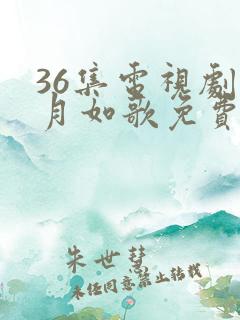 36集電視劇
月如歌免費
朱世慧
未經同意禁止轉載